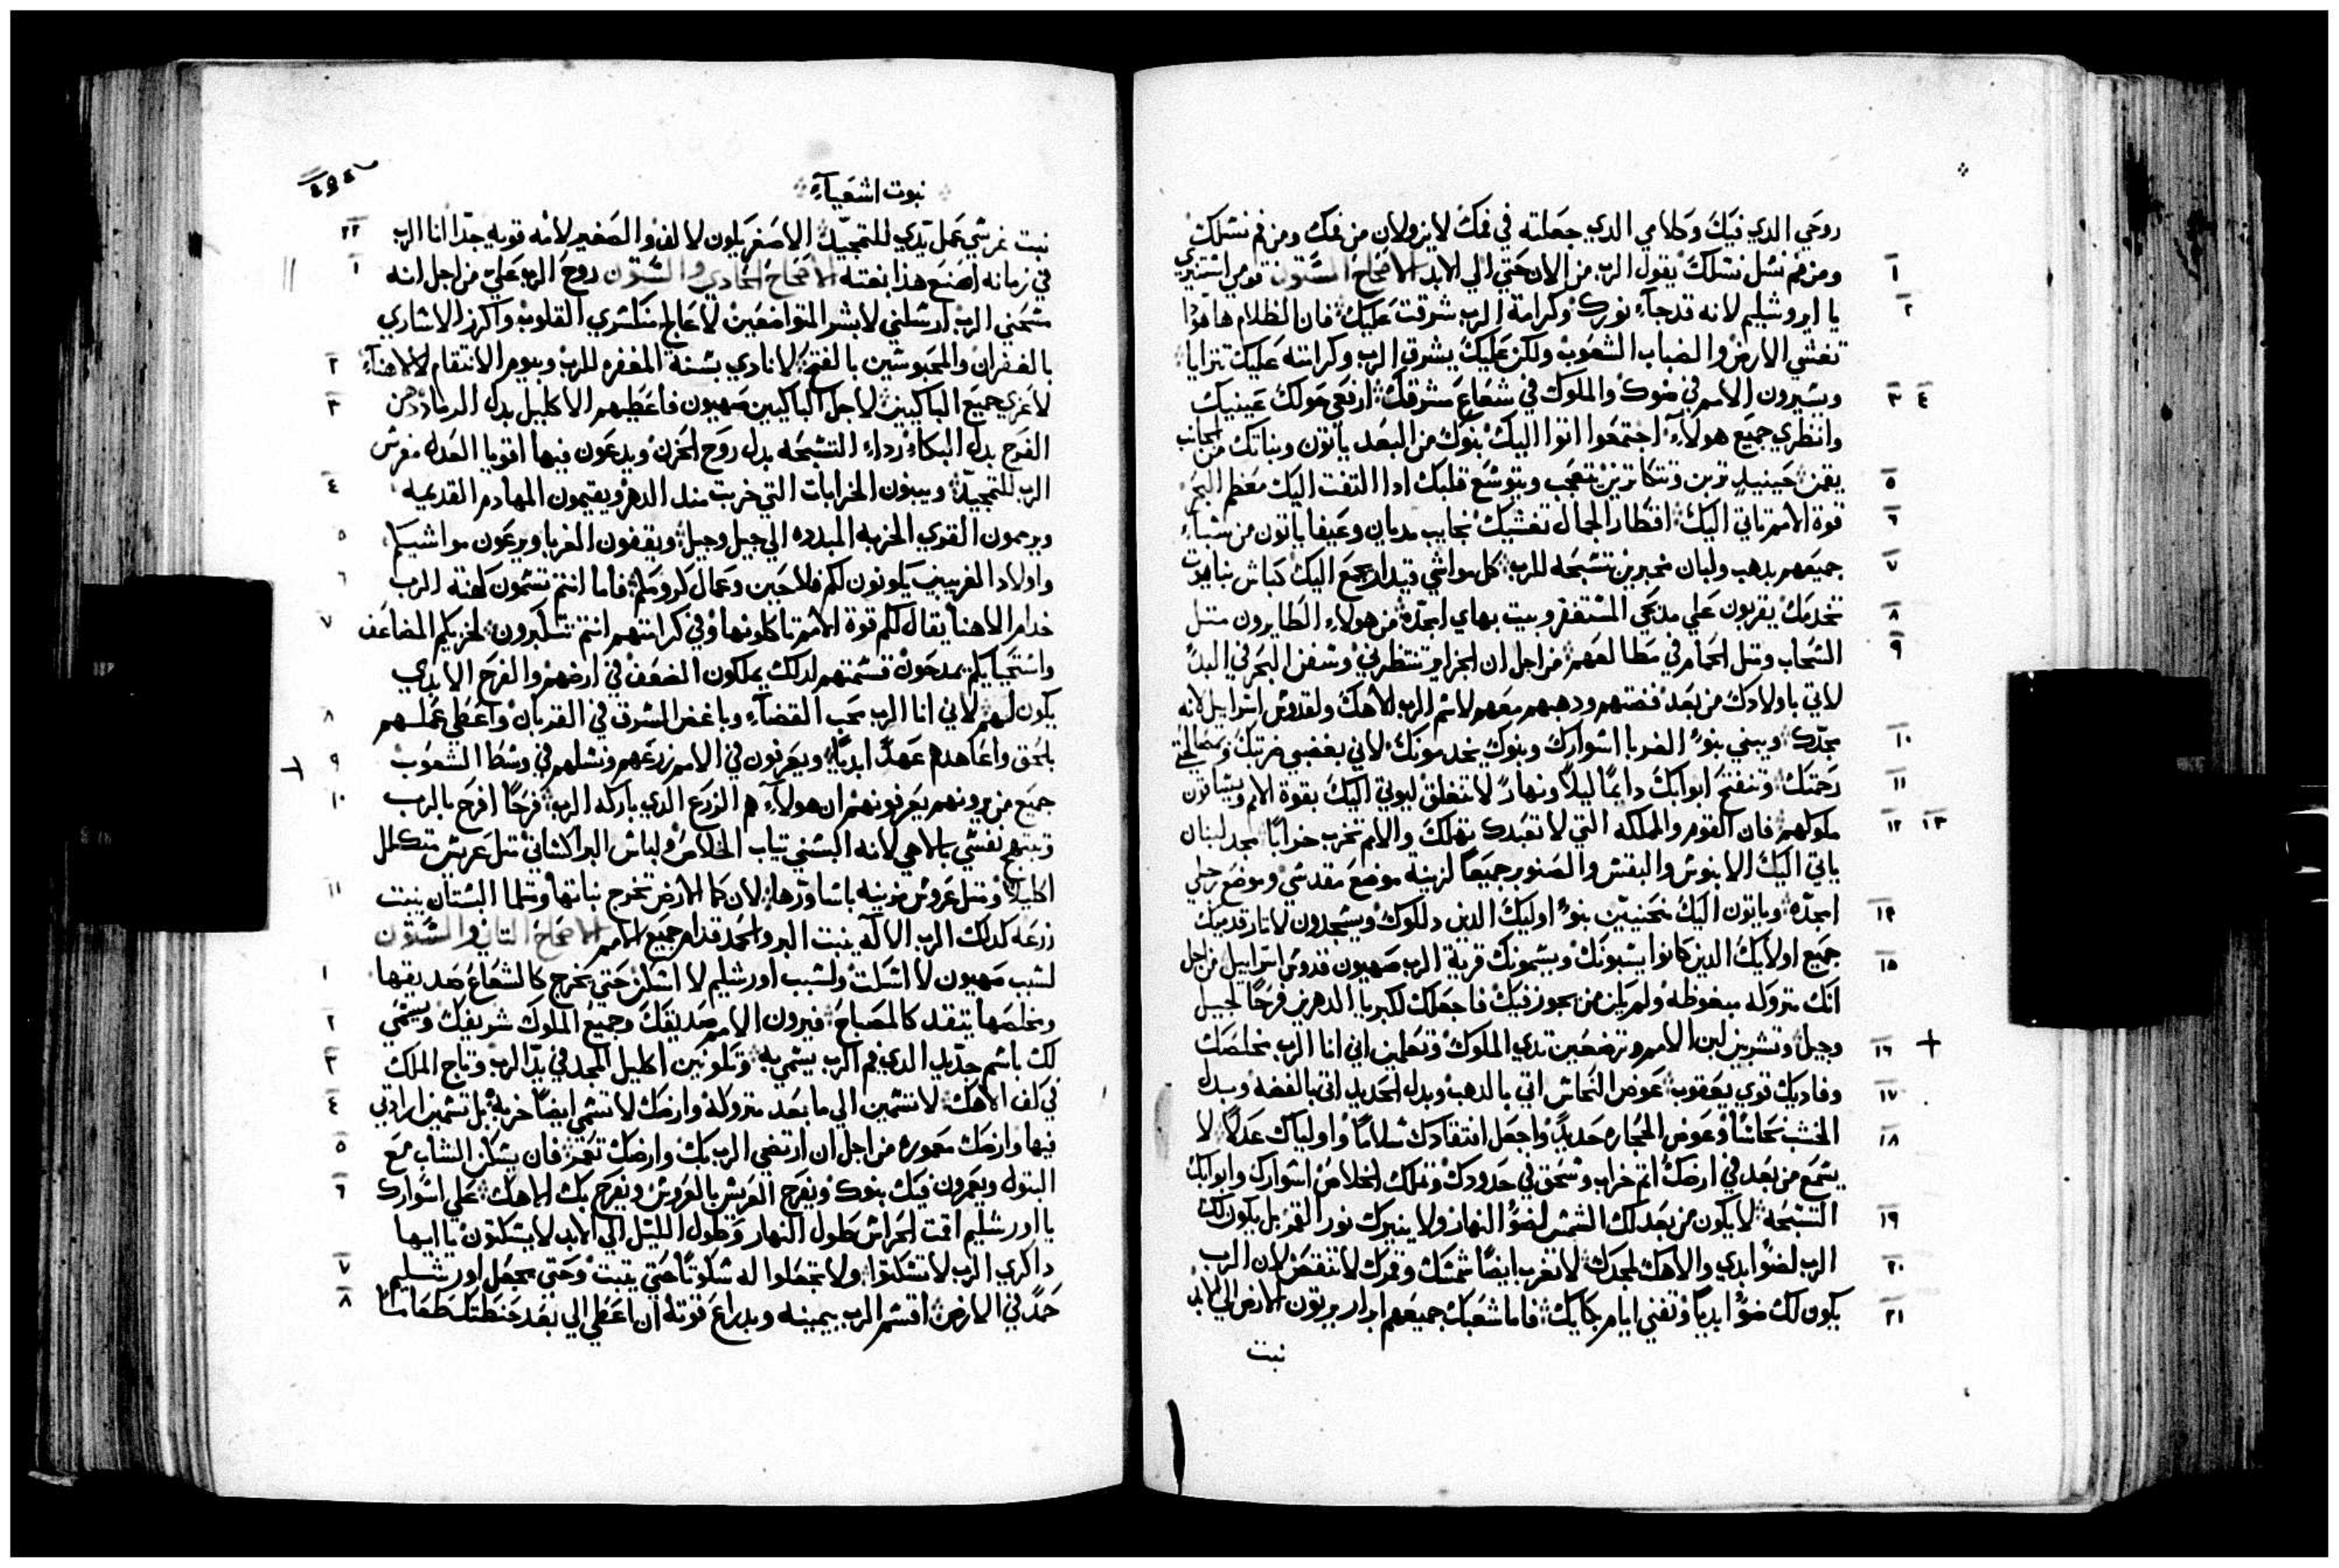 روحي الدي فيك وكلامي الدي جعلته في فمك لا يزولان من فمك ومن فم نسلك
ومن فم نسل نسلك يقول الرب من الان حتي الي الابد الاصحاح الستون قومي استنيري
١
يا اوروشليم لانه قد جاء نورك وكرامة الرب شرقت عليك فان الظلام ها هودا
٢
تغشي الارض والضباب الشعوب ولكن عليك يشرق الرب وكرامته عليك تترايا
ويسيرون الامم في ضوك والملوك في شعاع مشرقك ارفعي حولك عينيك
٣ ٤
وانظري جميع هولاء اجتمعوا اتوا اليك بنوك من البعد ياتون وبناتك من الجانب
يقمن حينيد ترين وتتكاترين تتعجب ويتوسع قلبك ادا التفت اليك معظم البحر
٥
قوة الامم تاتي اليك اقطار الجمال تغشيك نجايب مديان وعيفا ياتون من سباء
٦
جميعهم بدهب ولبان مخبرين تسبحه للرب كل مواشي قيدار يجمع اليك كباش نبايوت
٧
تخدمك يقربون علي مدبحي المستغفر وبيت بهاي امجده من هولاء الطايرون متل
٨
السحاب ومتل الحمام في مطالعهم من اجل ان الجزاير تنتظرني وسفن البحر في البدا
٩
لاتي باولادك من بعد فضتهم ودهبهم معهم لاسم الرب الاهك ولقدوس اسراييل لانه
مجدك ويبني بنو الغربا اسوارك وملوك يخدمونك لاني بغضبي ضربتك وبمصالحتي
١٠
رحمتك وتنفتح ابوابك دايما ليلا ونهارا لا تنغلق ليوتي اليك بقوة الامم ويساقون
١١
ملوكهم فان القوم والمملكه التي لا تعبدك تهلك والامم تخرب خرابا مجد لبنان
١٢ ١٣
ياتي اليك الابنوس والبقس والصنوبر جميعا لزينة موضع مقدسي وموضع رجلي
امجده وياتون اليك منحنيين بنو اوليك الدين دللوك ويسجدون لاتار قدميك
١٤
جميع اولايك الدين كانوا يسبونك ويسمونك قرية الرب صهيون قدوس اسراييل من اجل
١٥
انك متروله مبغوظه ولم يكن من يجوز فيك فاجعلك لكبريا الدهرين فرحا لجيل
وجيل وتشربين لبن الامم وترضعين تدي الملوك وتعلمين اني انا الرب مخلصك
١٦
وفاديك قوي يعقوب عوض النحاس اتي بالدهب وبدل الحديد اتي بالفضه وبدل
١٧
الخشب نحاسا وعوض الحجاره حديدا واجعل افتقادك سلاما واولياك عدلا لا
١٨
يسمع من بعد في ارضك اتم خراب وسحق في حدودك وتملك الخلاص اسوارك وابوابك
التسبحه لا يكون من بعد لك الشمس لضو النهار ولا ينيرك نور القمر بل يكون لك
١٩
الرب لضو ابدي والاهك لمجدك لا تغرب ايضا شمسك وقمرك لا تنقض لان الرب
٢٠
يكون لك ضوا ابديا وتفني ايام بكايك فاما شعبك جميعهم ابرار يرتون الارض الي الابد
٢١
نبت
نبوت اشعياء
نبت غرسي عمل يدي للتمجيد الاصغر يكون لالف والصغير لامه قويه جدا انا الرب
٢٢
في زمانه اصنع هذا بغتة الاصحاح الحادي والستون روح الرب علي من اجل انه
١
مسحني الرب ارسلني لابشر المتواضعين لاعالج منكسري القلوب واكرز الاساري
بالغفران والمحبوسين بالفتح لانادي بسنة المغفره للرب وبيوم الانتقام لالاهنا
٢
لاعزي جميع الباكيين لاجل الباكيين صهيون فاعطيهم الاكليل بدل الرماد دهن
٣
الفرح بدل البكاء رداء التسبحه بدل روح الحزن ويدعون فيها اقويا العدل مغرس
الرب للتمجيد ويبنون الخرابات التي خربت مند الدهر ويقيمون المهادم القديمه
٤
ويرممون القري الخربه المبدده الي جيل وجيل ويقفون الغربا ويرعون مواشيكم
٥
واولاد الغريبين يكونون لكم فلاحين وعمال كرومكم فاما انتم تسمون كهنة الرب
٦
خدام الاهنا يقال لكم قوة الامم تاكلونها وفي كرامتهم انتم تتكبرون لخزيكم المضاعف
٧
واستحيايكم يمدحون قسمتهم لدلك يملكون الضعف في ارضهم والفرح الابدي
يكون لهم لاني انا الرب محب القضاء وباغض السرق في القربان واعطي عملهم
٨
بالحق واعاهدهم عهدا ابديا ويعرفون في الامم زرعهم ونسلهم في وسط الشعوب
٩
جميع من يرونهم يعرفونهم ان هولاء هم الزرع الدي باركه الرب فرحا افرح بالرب
١٠
وتبتهج نفسي بالاهي لانه البسني تياب الخلاص ولباس البر اكساني متل عريس متكلل
اكليلا ومتل عروس مزينه باساورها لان كما الارض تخرج نباتها ومتلما البستان ينبت
١١
زرعه كدلك الرب الاله ينبت البر والحمد قدام جميع الامم الاصحاح التاني والستون
لسبب صهيون لا اسكت ولسبب اورشليم لا اسكن حتي يخرج كالشعاع صديقها
١
ومخلصها يتقد كالمصباح فيرون الامم صديقك وجميع الملوك شريفك ويسمي
٢
لك باسم جديد الدي فم الرب يسميه وتكونين اكليل المجد في يد الرب وتاج الملك
٣
في كف الاهك لا تسمين الي ما بعد متروله وارضك لا تسمي ايضا خربة بل تسمين ارادتي
٤
فيها وارضك معموره من اجل ان ارتضي الرب بك وارضك تعمر فان يسكن الشاب مع
٥
البتول ويعمرون فيك بنوك ويفرح العريس بالعروس ويفرح بك الاهك علي اسوارك
٦
يا اورشليم اقمت الحراس طول النهار وطول الليل الي الابد لا يسكتون يا ايها
داكري الرب لا تسكتوا ولا تجعلوا له سكوتا حتي يتبت وحتي يجعل اورشليم
٧
حمدا في الارض اقسم الرب بيمينه وبدراع قوته ان اعطي الي بعد حنطتك طعاما
٨